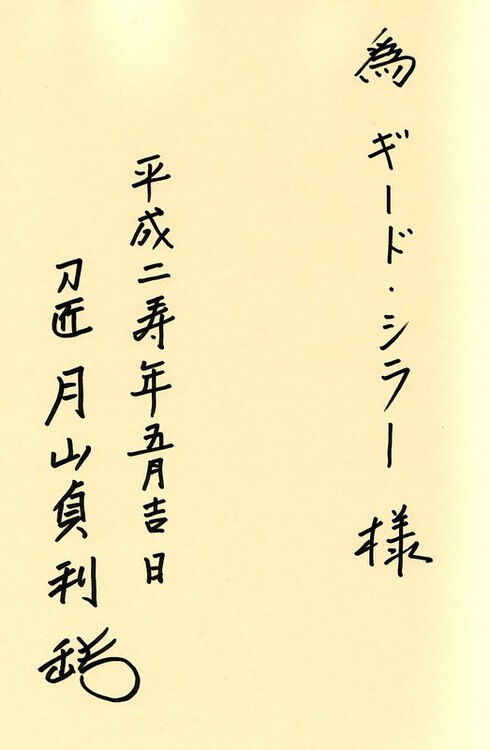 為 ギード・シラー 様
平成二寿年五月吉日
刀匠 月山貞利